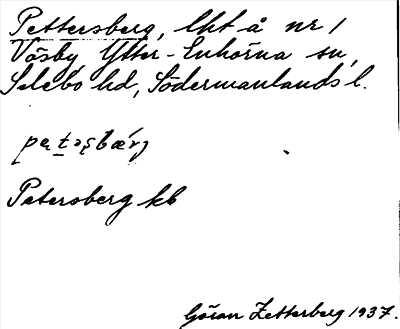 Pettersberg, lht å nr 1
Väsby Ytter-Enhörna sn,
Selebo hd, Södermanlands l.
Petersberg kb
Göran Zetterberg 1937.